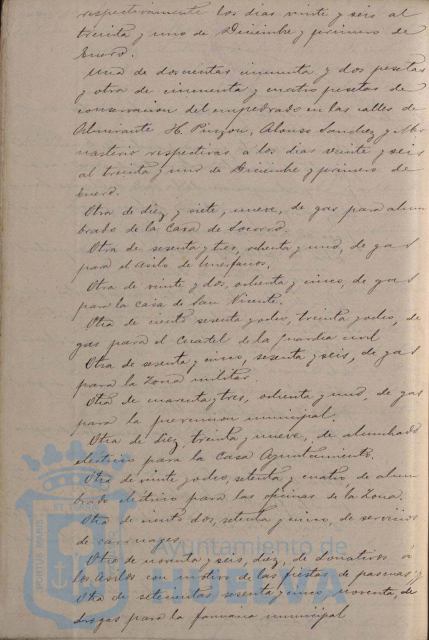 respectivamente los dias veinte y seis al
treinta y uno de Diciembre y primero de
Enero.
Una de doscientas cincuenta y dos pesetas
y otra de cincuenta y cuatro pesetas de
conservacion del empedrado en las calles de
Almirante H. Pinzon, Alonso Sanchez y Mo
nasterio respectivas a los dias veinte y seis
al treinta y uno de Diciembre y primero de
Enero.
Otra de diez y siete, nueve, de gas para alum
brado de la Casa de Socorro.
Otra de sesenta y tres, ochenta y uno, de gas
para el asilo de huérfanos.
Otra de veinte y dos, ochenta y cinco, de gas
para la casa de San Vicente.
Otra de ciento sesenta y ocho, treinta y ocho, de
gas para el Cuartel de la Guardia civil
Otra de sesenta y cinco, sesenta y seis, de gas
para la Zona militar.
Otra de cuarenta y tres, ochenta y uno, de gas
para la prevencion municipal.
Otra de diez, treinta y nueve, de alumbrado
electrico para la Casa Ayuntamiento.
Otra de veinte y ocho, setenta y cuatro, de alum
brado electrico para las oficinas de la Zona.
Otra de ciento dos, setenta y cinco, de servicios
de carruages.
Otra de noventa y seis, diez, de donativos á
los Asilos con motivo de las fiestas de pascuas y
Otra de setecientas sesenta y cinco, noventa, de
drogas para la farmacia municipal
Ayuntamiento de
HUELVA